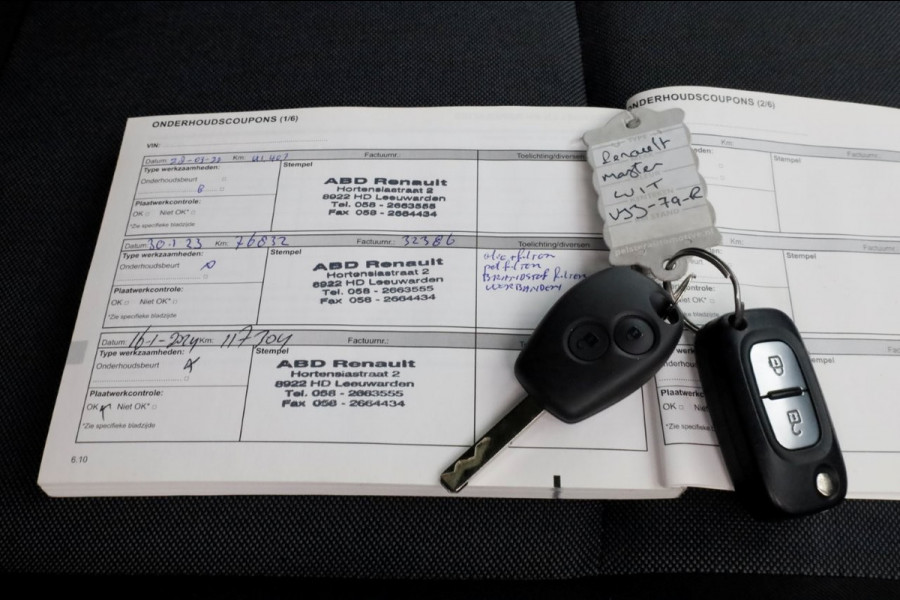 ONDERHOUDSCOUPONS (1/6)
VIN:
Datum: Km: 41.407 Factuurnr.: Toelichting/diversen
Type werkzaamheden: Stempel
Onderhoudsbeurt
Plaatwerkcontrole:
OK Niet OK*
*Zie specifieke bladzijde
ABD Renault
Hortensiastraat 2
8922 HD Leeuwarden
Tel. 058 - 2663555
Fax 058 - 2664434
Datum: 30.1 23 Km: 76832 Factuurnr.: 32386 Toelichting/diversen
Type werkzaamheden: Stempel
Onderhoudsbeurt
Plaatwerkcontrole:
OK Niet OK*
*Zie specifieke bladzijde
ABD Renault
Hortensiastraat 2
8922 HD Leeuwarden
Tel. 058 - 2663555
Fax 058 - 2664434
oliefilter
BRANDSTOF filter
Datum: 16-1-2024 Km: 117704 Factuurnr.:
Type werkzaamheden: Stempel
Onderhoudsbeurt
Plaatwerkcontrole:
OK Niet OK*
*Zie specifieke bladzijde
ABD Renault
Hortensiastraat 2
8922 HD Leeuwarden
Tel. 058 - 2663555
Fax 058 - 2664434
6.10
ONDERHOUDSCOUPONS (2/6)
Renault
master
WIT
VJJ-79-R
Km:
Stempel
Plaatwerkc
OK Niet
*Zie specifie